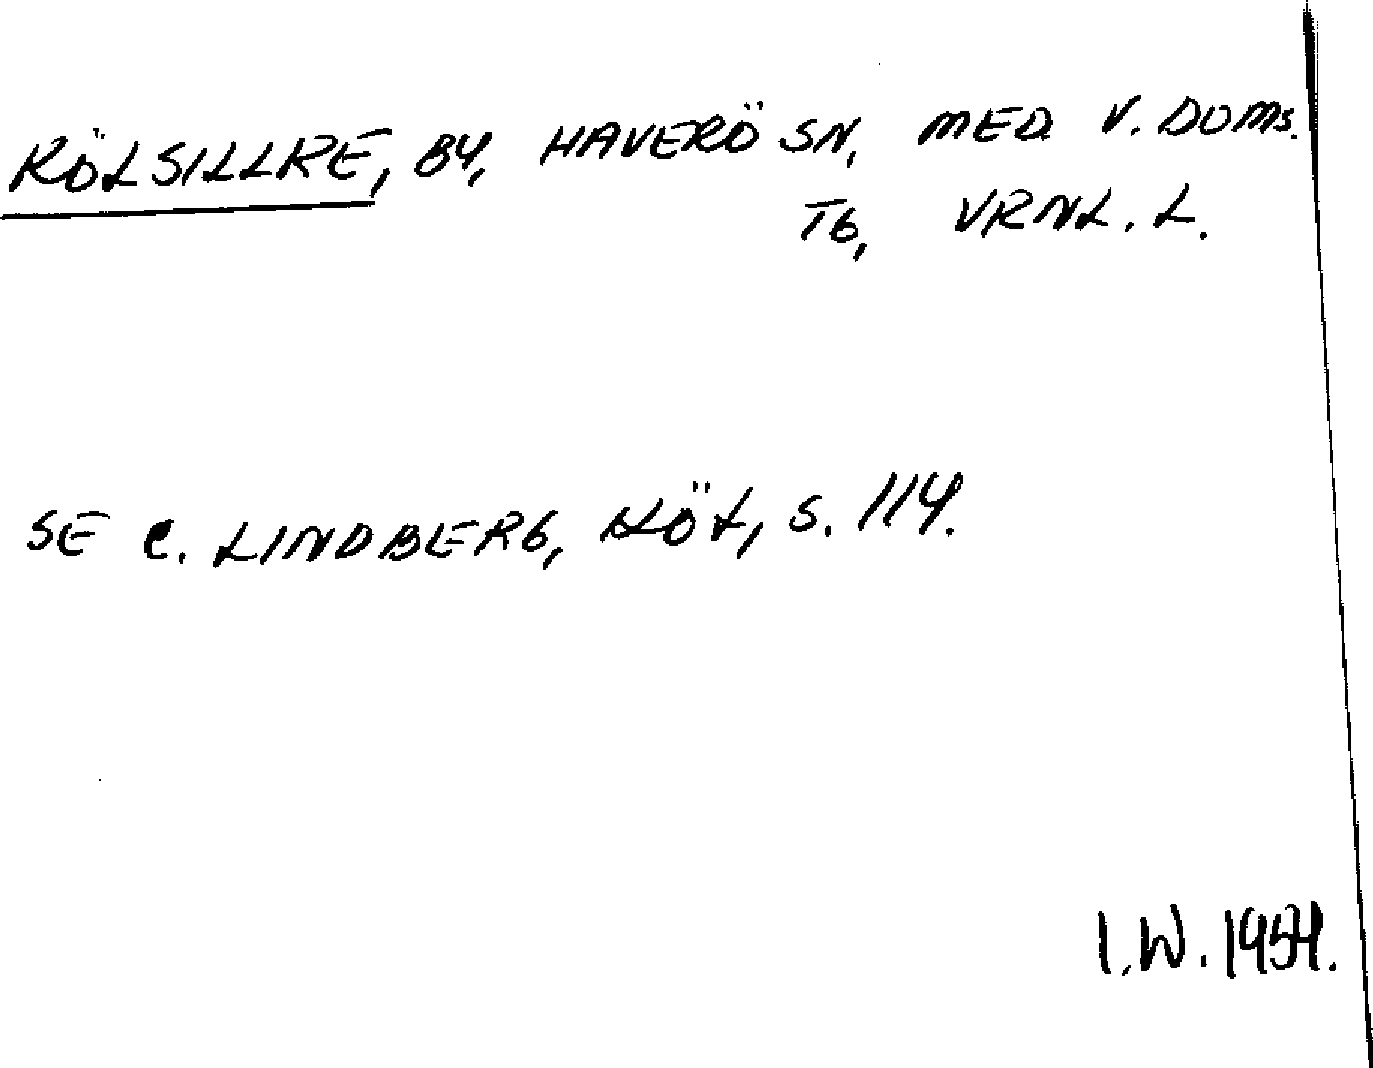 RÖLSILLRE, BY, HAVERÖ SN, MED. V. DOMS.
TG, VRNL. L.
SE C. LINDBERG, KÖL, S. 114.
I.W. 1954.